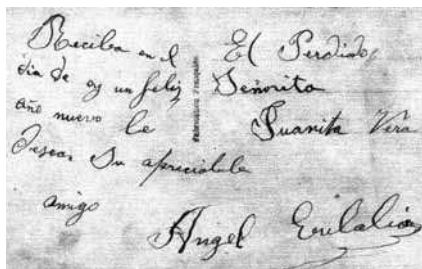 Reciba en el
dia de oy un feliz
año nuevo le
desea Su apreciable
amigo
Angel
El Perdido
Señorita
Juanita Vera